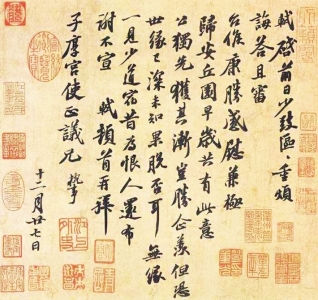 軾啓前日少致區區重煩
誨答且審
台候康勝感慰兼極
歸安丘園早歲共有此意
公獨先獲其漸豈勝企羨但恐
世緣已深未知果脫否耳無緣
一見少道宿昔爲恨人還布
謝不宣 軾頓首再拜
子厚宮使正議兄執事
十二月廿七日